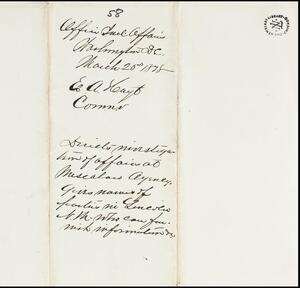 58
Office Ind Affairs
Washington DC.
March 20th 1878
E A Hayt
Comnr
Directs investiga-
tion of affairs at
Mescalero Agency.
Gives names of
parties in Lincoln
N.M. who can fur-
nish information &c.